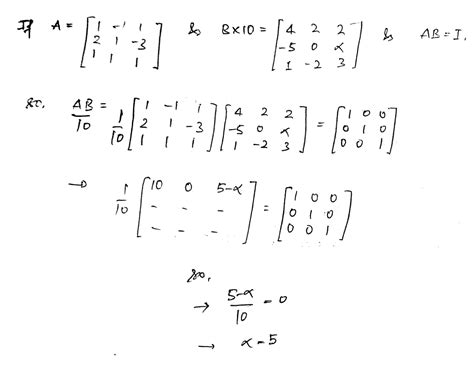 If A = [1 -1 1; 2 1 -3; 1 1 1] & B×10 = [4 2 2; -5 0 α; 1 -2 3] & AB = I.
so, AB/10 = 1/10 [1 -1 1; 2 1 -3; 1 1 1] [4 2 2; -5 0 α; 1 -2 3] = [1 0 0; 0 1 0; 0 0 1]
→ 1/10 [10 0 5-α; - - -; - - -] = [1 0 0; 0 1 0; 0 0 1]
so,
→ (5-α)/10 = 0
→ α = 5